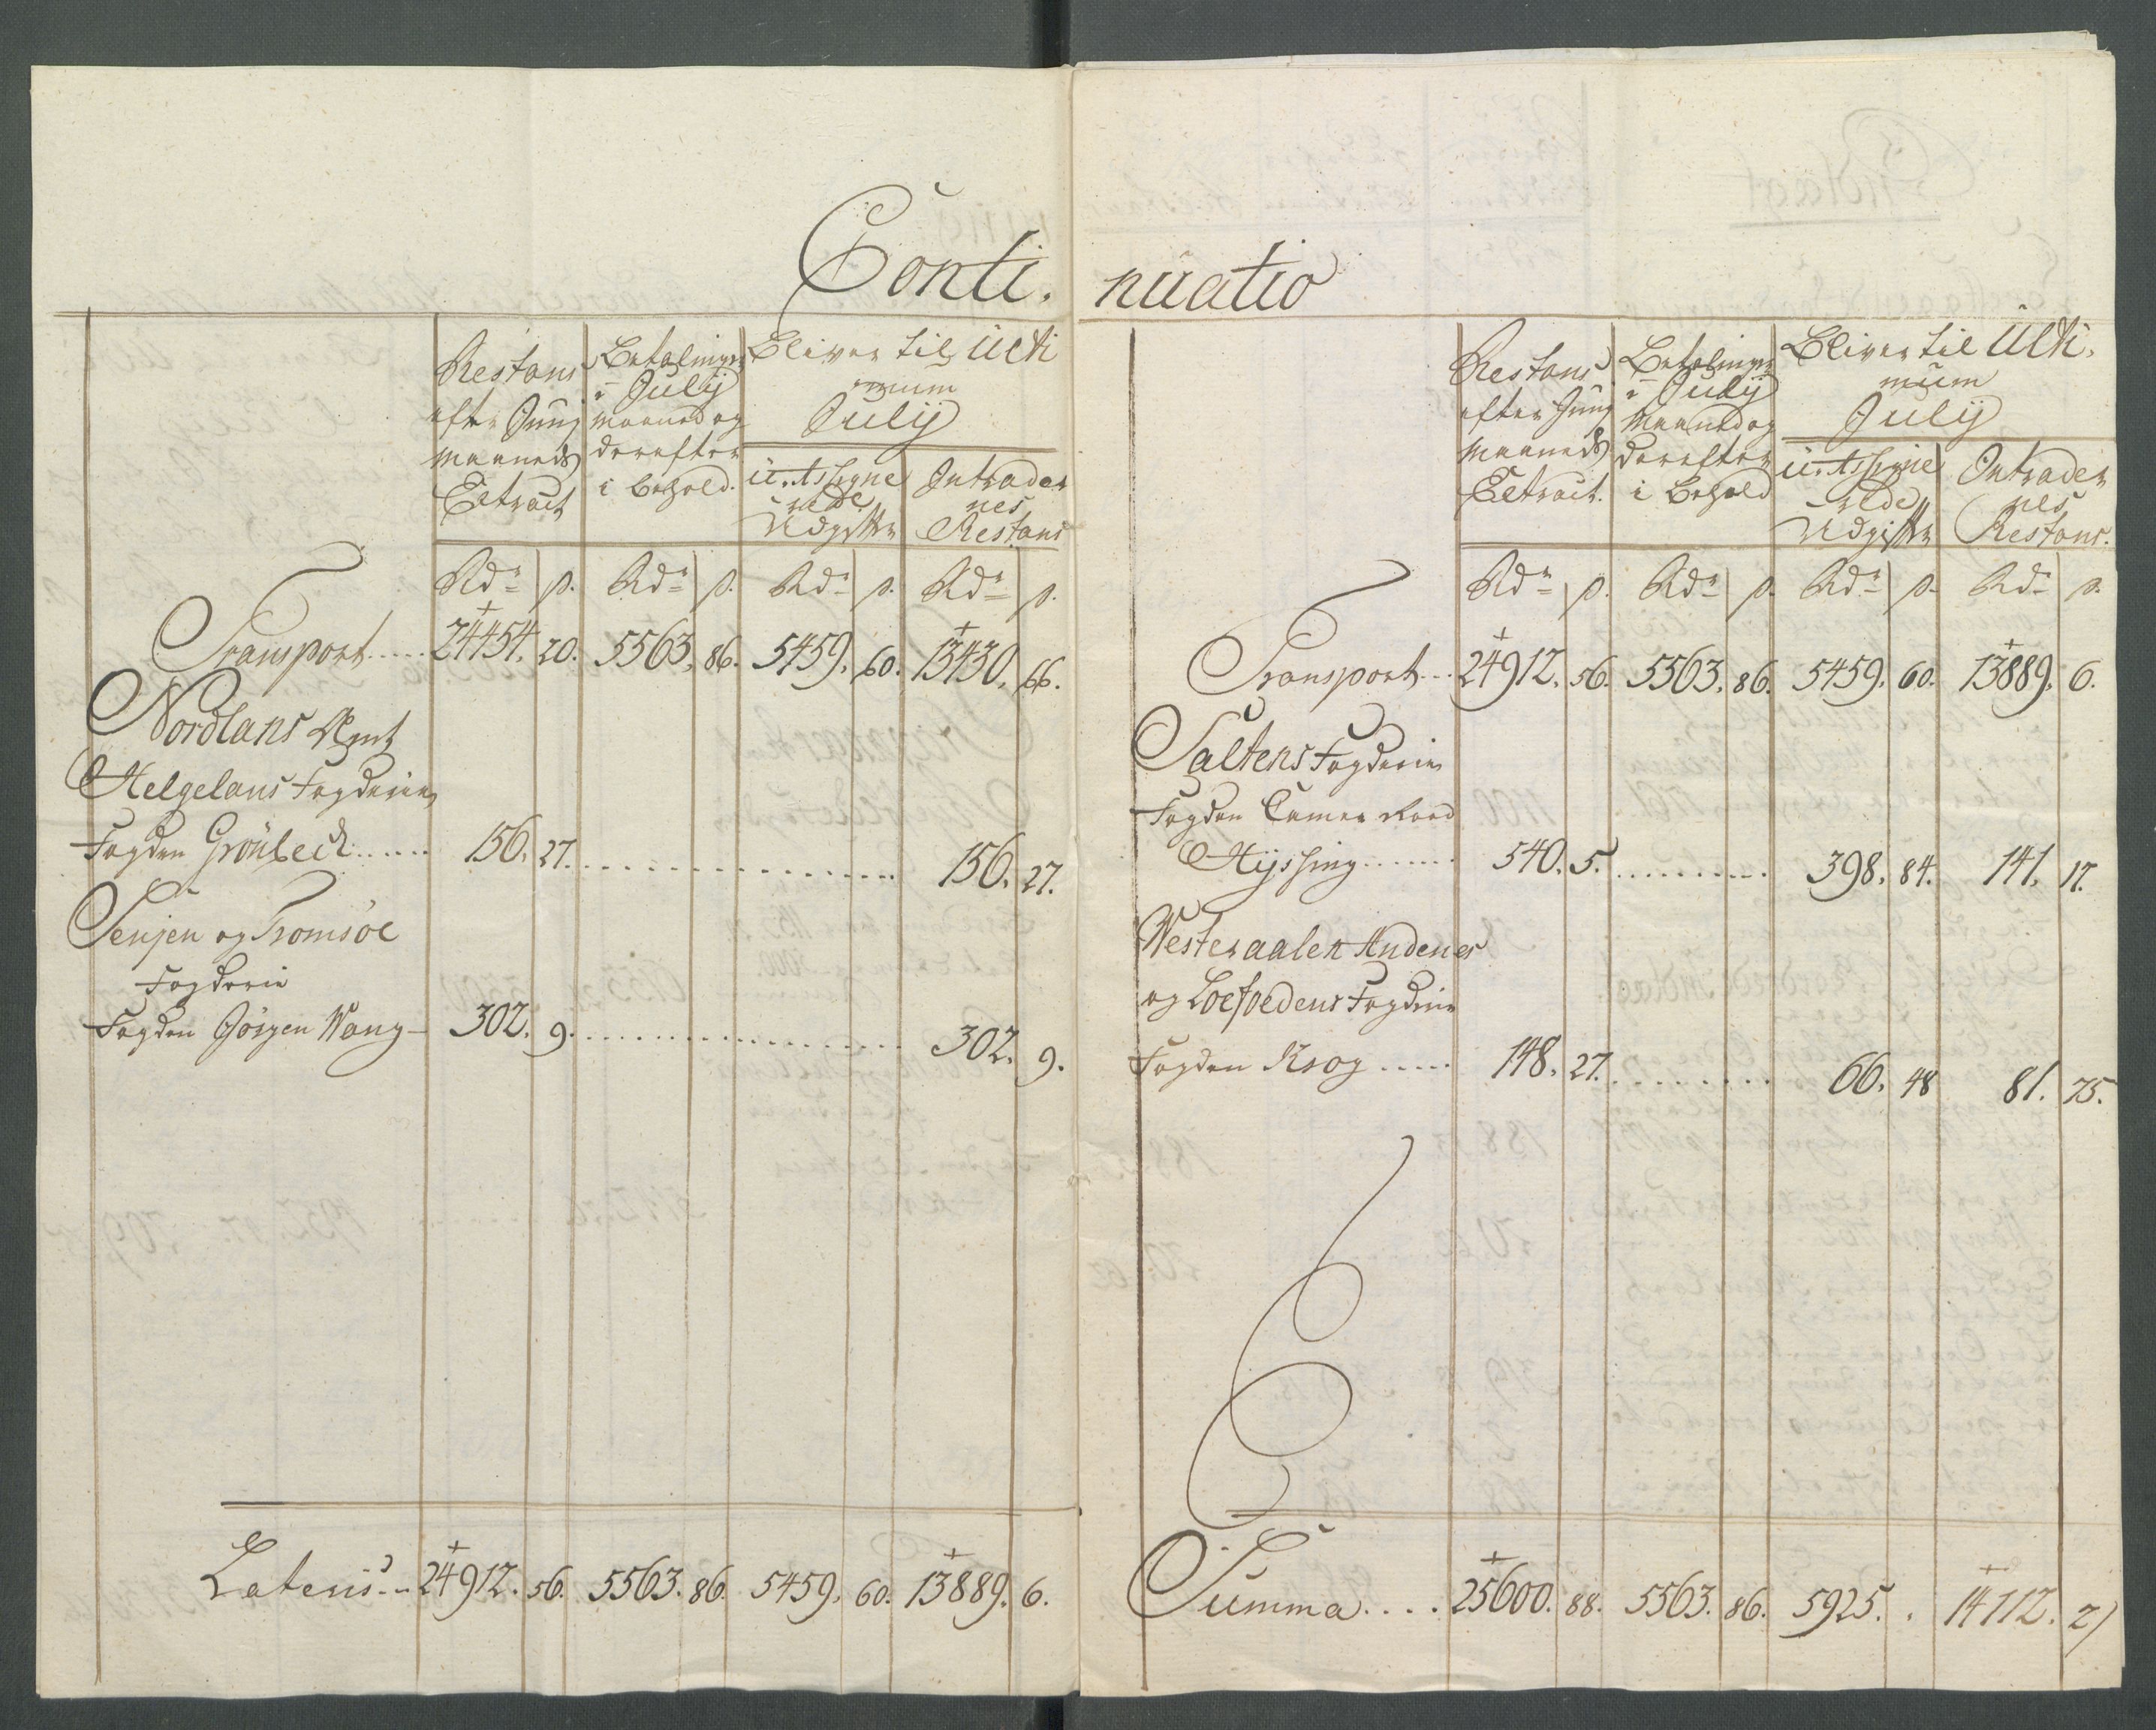 Conti. nuatio
Restans
efter Junij
maaneds
Extract
Betalingen
i Julij
maaned og
derefter
i behold.
Bliver til Ulti
mum
Julij
u-Assigne
rede
Udgifter
Intrader
nes
Restans
Rdr ß. Rdr ß. Rdr ß. Rdr ß.
Transport..... 24454. 20. 5563. 86. 5459. 60. 13430. 66.
Nordlans Ampt
Helgelans Fogderie
Fogden Grönbech...... 156. 27. ................ 156. 27.
Senjen og Tromsöe
Fogderie
Fogden Jörgen Wang - 302. 9. ................ 302. 9.
Lateris... 24912. 56. 5563. 86. 5459. 60. 13889. 6.
Restans
efter Junij
maaneds
Extract.
Betalingen
i Julij
maaned og
derefter
i behold
Bliver til Ulti.
mum
Julij
u-Assigne
rede
Udgifter
Intrader
nes
Restans.
Rdr ß. Rdr ß. Rdr ß. Rdr ß.
Transport... 24912. 56. 5563. 86. 5459. 60. 13889. 6.
Saltens Fogderie
Fogden Cammer Raad
Hyssing....... 540. 5. ......... 398. 84. 141. 17.
Westeraalen Andenes
og Loefoedens Fogderie
Fogden Krog ..... 148. 27. ........ 66. 48 81. 75.
Summa.... 25600. 88. 5563. 86. 5925. . 14112. 2